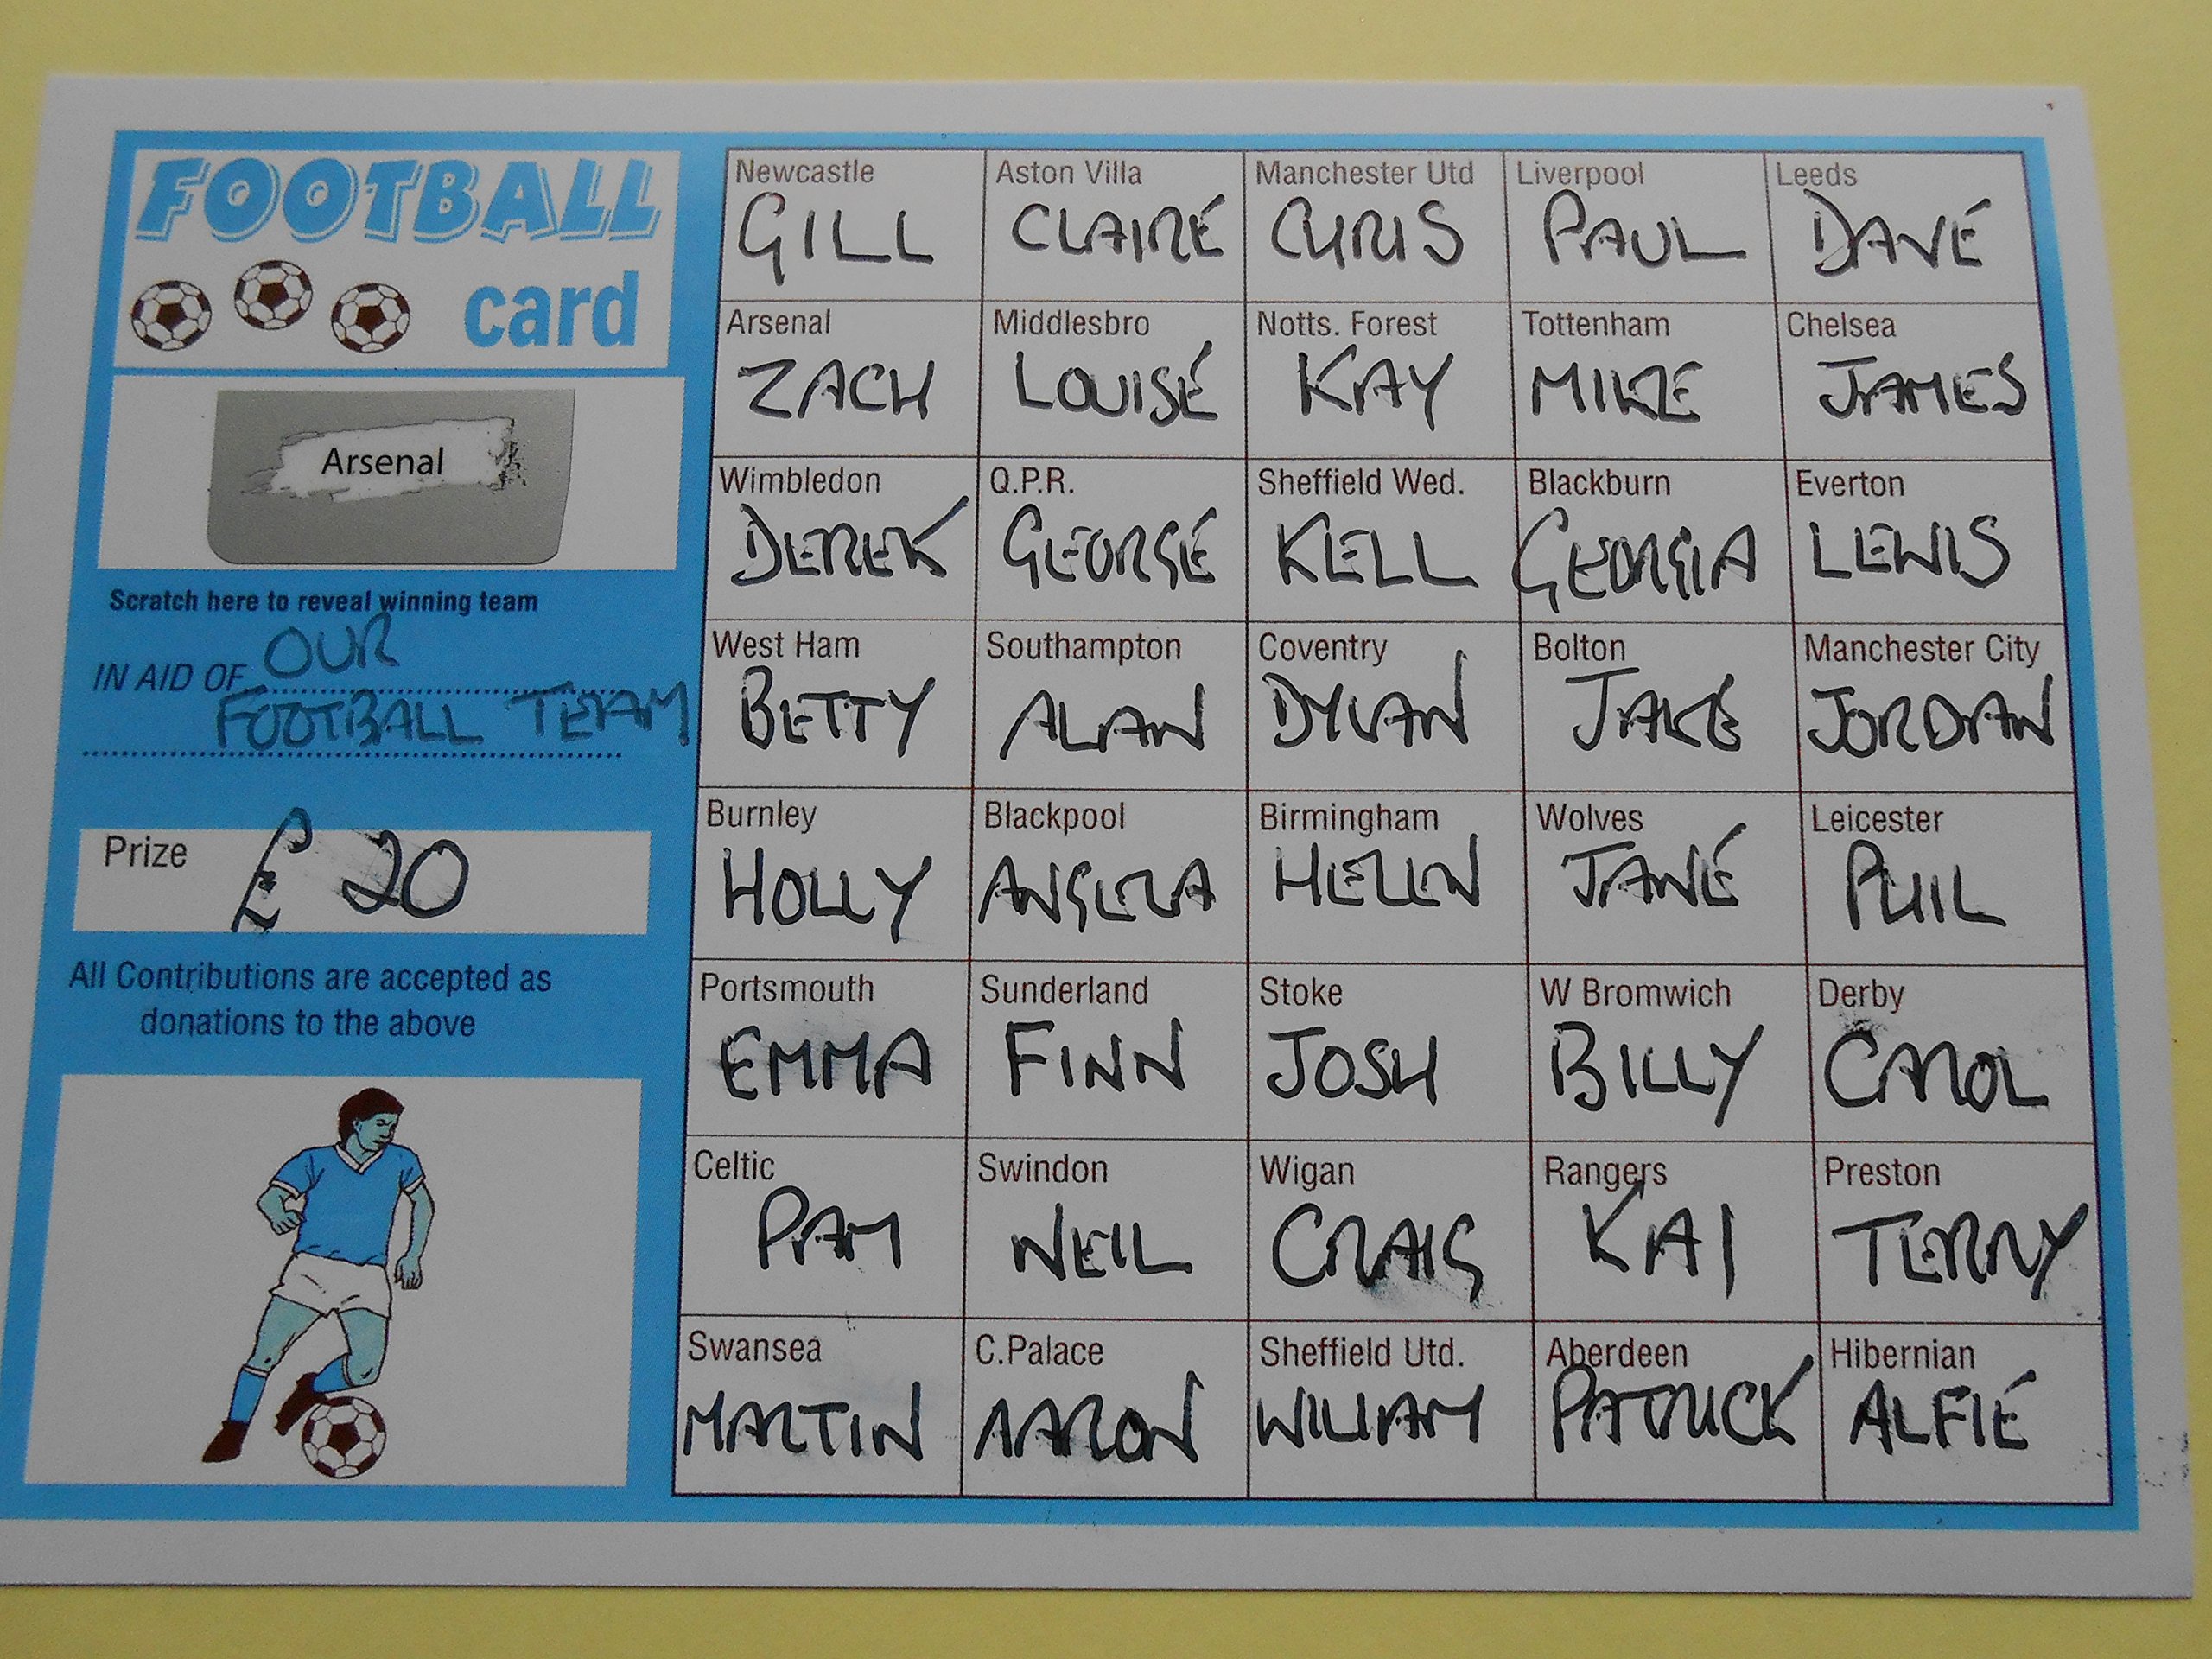 FOOTBALL
card
Arsenal
Scratch here to reveal winning team
IN AID OF OUR
FOOTBALL TEAM
Prize £20
All Contributions are accepted as
donations to the above
Newcastle Aston Villa Manchester Utd Liverpool Leeds
GILL CLAIRE CHRIS PAUL DAVE
Arsenal Middlesbro Notts. Forest Tottenham Chelsea
ZACH LOUISE KAY MIKE JAMES
Wimbledon Q.P.R. Sheffield Wed. Blackburn Everton
DEREK GEORGE KELL GEORGIA LEWIS
West Ham Southampton Coventry Bolton Manchester City
BETTY ALAN DYLAN JAKE JORDAN
Burnley Blackpool Birmingham Wolves Leicester
HOLLY ANGELA HELEN JANE PHIL
Portsmouth Sunderland Stoke W Bromwich Derby
EMMA FINN JOSH BILLY CAROL
Celtic Swindon Wigan Rangers Preston
PAM NEIL CRAIG KAI TERRY
Swansea C.Palace Sheffield Utd. Aberdeen Hibernian
MARTIN AARON WILLIAM PATRICK ALFIE